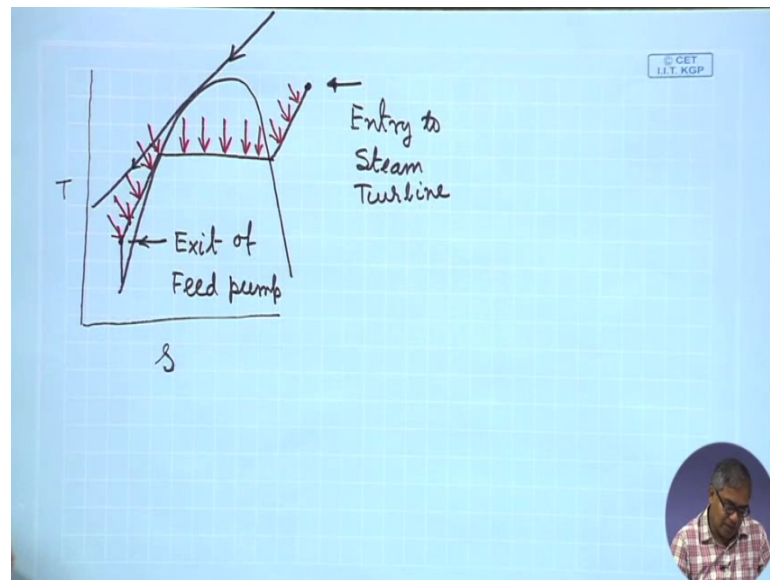 © CET
I.I.T. KGP
Entry to
Steam
Turbine
T
Exit of
Feed pump
S